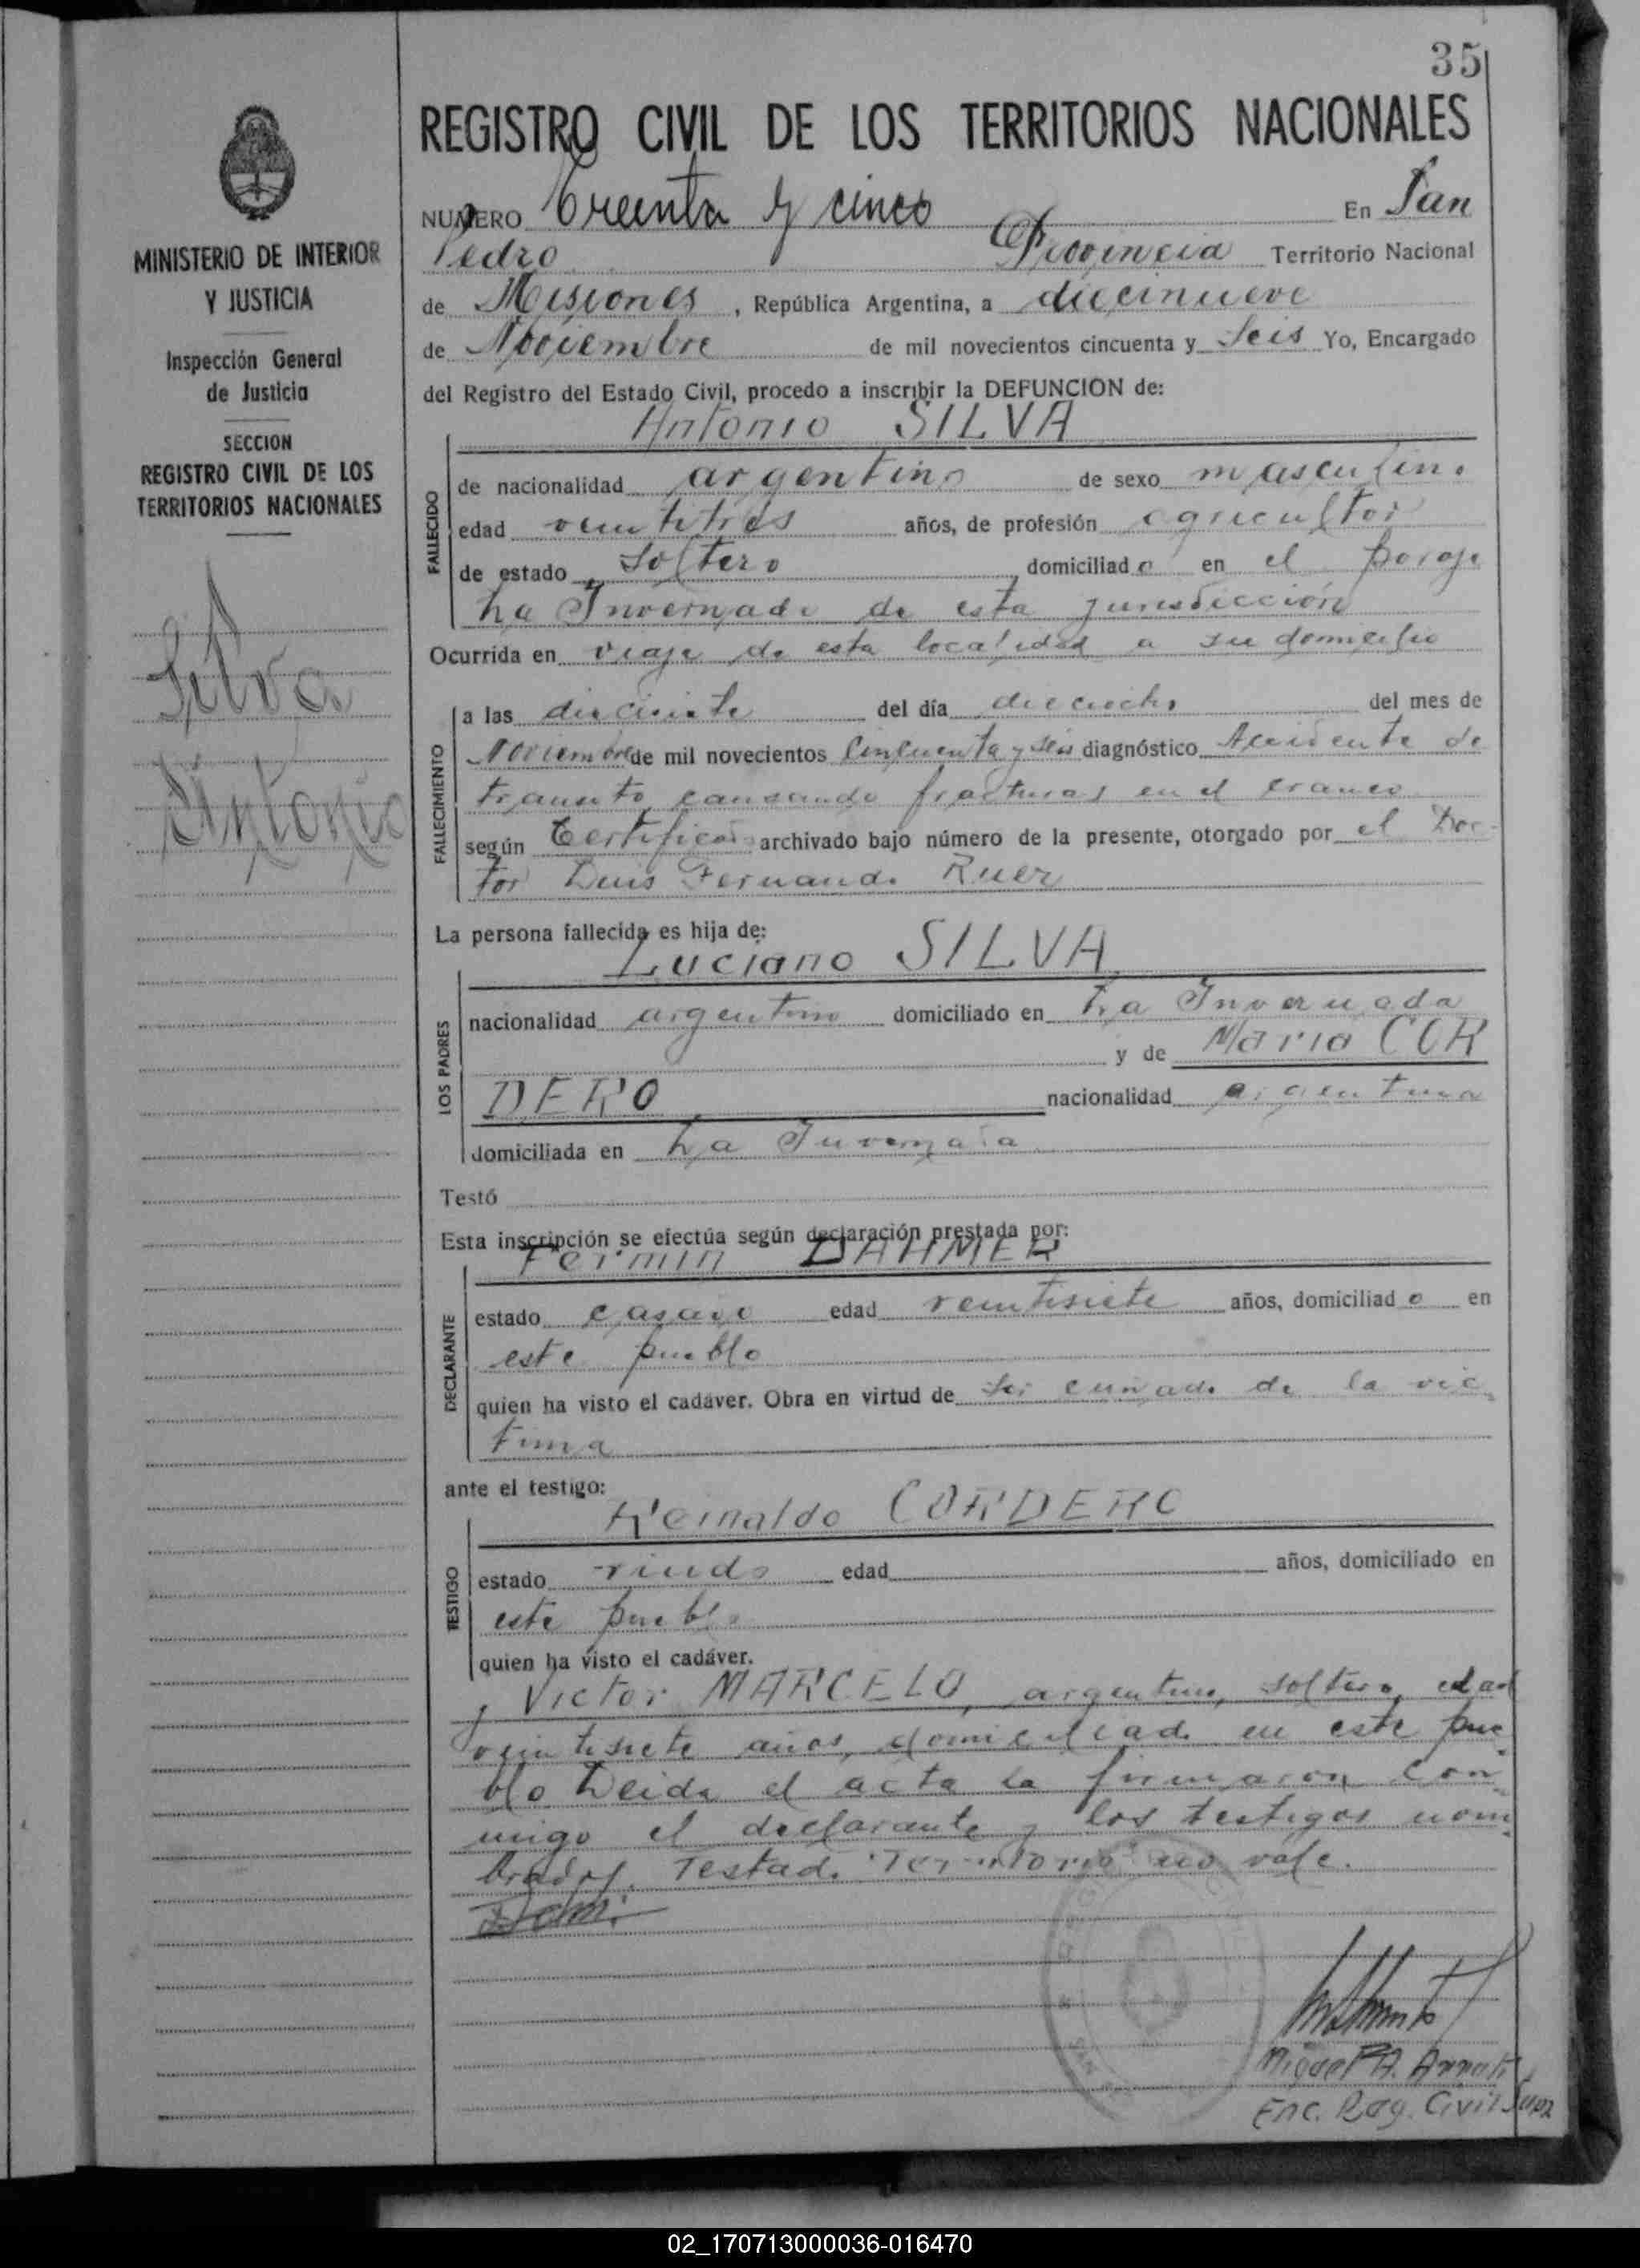 35
REGISTRO CIVIL DE LOS TERRITORIOS NACIONALES
MINISTERIO DE INTERIOR
Y JUSTICIA
Inspección General
de Justicia
SECCION
REGISTRO CIVIL DE LOS
TERRITORIOS NACIONALES
Silva
Antonio
NUMERO Treinta y cinco En San
Pedro Provincia Territorio Nacional
de Misiones, República Argentina, a diecinueve
de Noviembre de mil novecientos cincuenta y Seis Yo, Encargado
del Registro del Estado Civil, procedo a inscribir la DEFUNCION de:
Antonio SILVA
FALLECIDO
de nacionalidad argentino de sexo masculino
edad veintitres años, de profesión agricultor
de estado soltero domiciliado en el paraje
La Invernada de esta jurisdicción
Ocurrida en viaje de esta localidad a su domicilio
FALLECIMIENTO
a las diecisiete del día dieciocho del mes de
Noviembre de mil novecientos Cincuenta y seis diagnóstico Accidente de
transito causando fracturas en el craneo
según Certificado archivado bajo número de la presente, otorgado por el Doc-
tor Luis Fernando Ruer
La persona fallecida es hija de:
Luciano SILVA
LOS PADRES
nacionalidad argentino domiciliado en La Invernada
y de Maria COR
DERO nacionalidad argentina
domiciliada en La Invernada
Testó
Esta inscripción se efectúa según declaración prestada por:
Fermin DAHMER
DECLARANTE
estado casado edad veintisiete años, domiciliado en
este pueblo
quien ha visto el cadáver. Obra en virtud de ser cuñado de la vic-
tima
ante el testigo:
Reinaldo CORDERO
TESTIGO
estado viudo edad años, domiciliado en
este pueblo
quien ha visto el cadáver.
y Victor MARCELO, argentino, soltero, edad
veintisiete años, domiciliado en este pue-
blo Leida el acta la firmaron con-
migo el declarante y los testigos nom-
brados. Testado "Territorio" no vale.
Miguel A.
Enc. Reg. Civil Supl
02_170713000036-016470